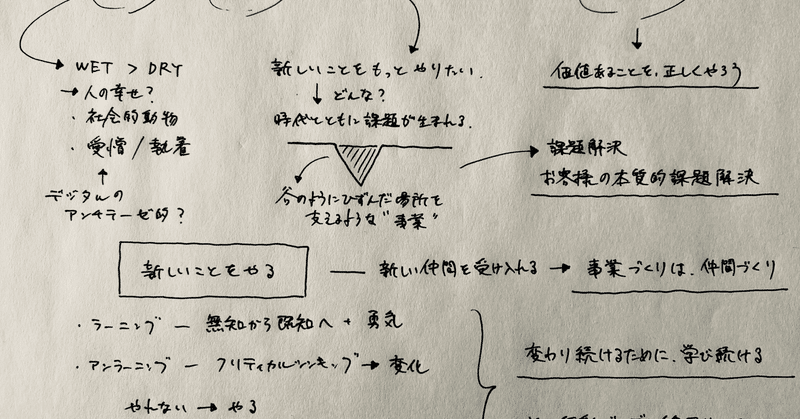 WET > DRY
→ 人の幸せ？
・社会的動物
・愛情／執着
↑
デジタルの
アンチテーゼ的？
新しいことをもっとやりたい.
↓ どんな？
時代とともに課題が生まれる.
谷のようにひずんだ場所を
支えるような“事業”
価値あることを,正しくやろう
課題解決
お客様の本質的課題解決
新しいことをやる — 新しい仲間を受け入れる → 事業づくりは、仲間づくり
・ラーニング — 無知から既知へ + 勇気
・アンラーニング — クリティカルシンキング → 変化
やれない → やる
変わり続けるために、学び続ける